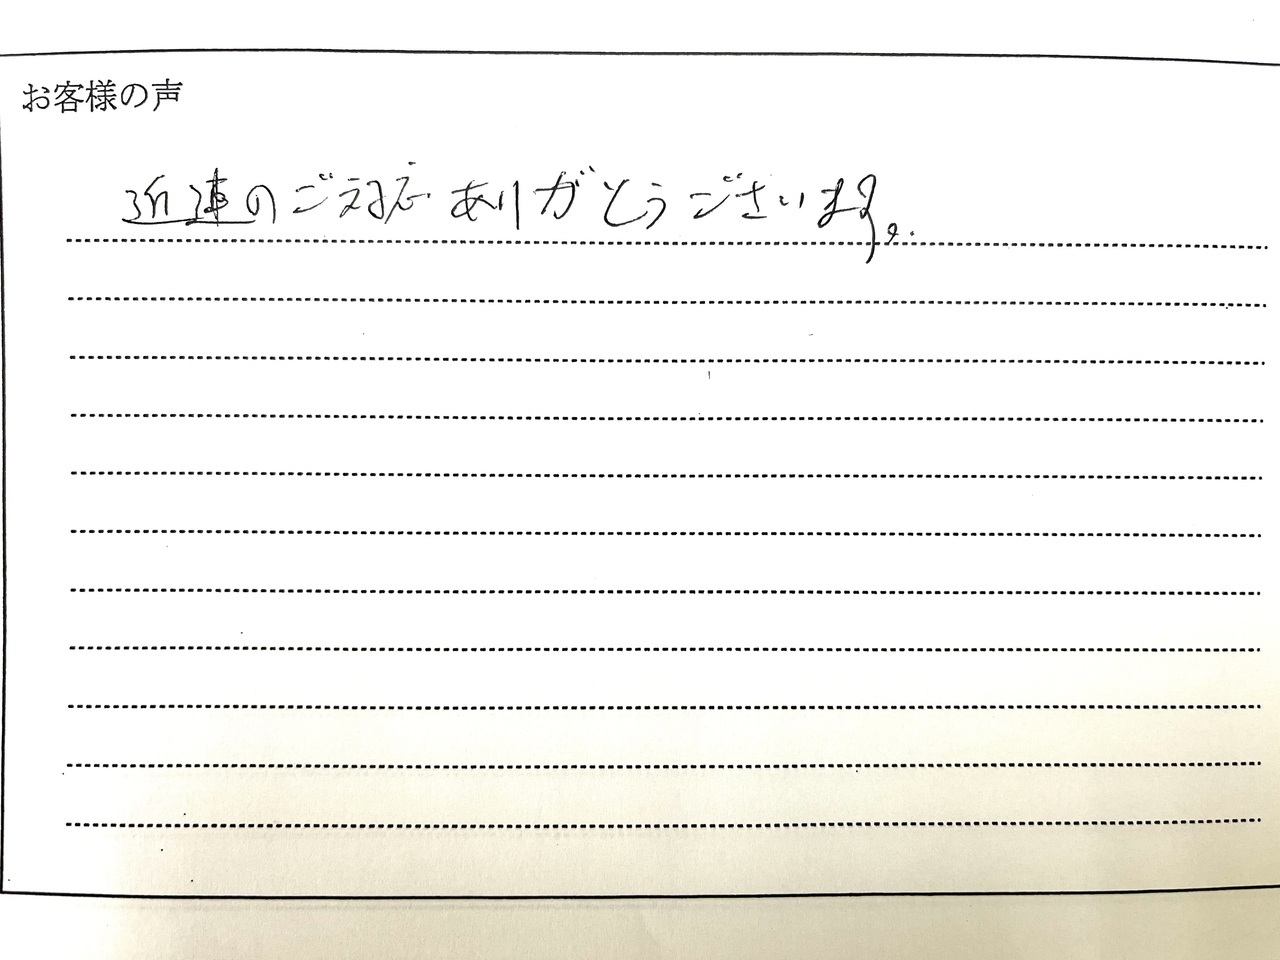 お客様の声
迅速のご対応ありがとうございます。